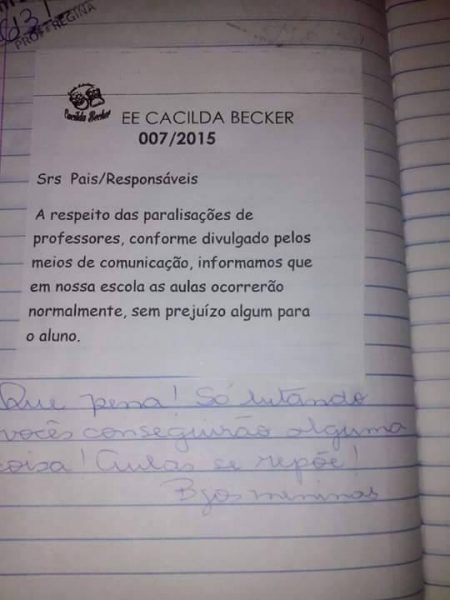 PROFª REGINA
Cacilda Becker
EE CACILDA BECKER
007/2015
Srs Pais/Responsáveis
A respeito das paralisações de
professores, conforme divulgado pelos
meios de comunicação, informamos que
em nossa escola as aulas ocorrerão
normalmente, sem prejuízo algum para
o aluno.
Que pena! Só lutando
vocês conseguirão alguma
coisa! Aulas se repõe!
Bjos meninas